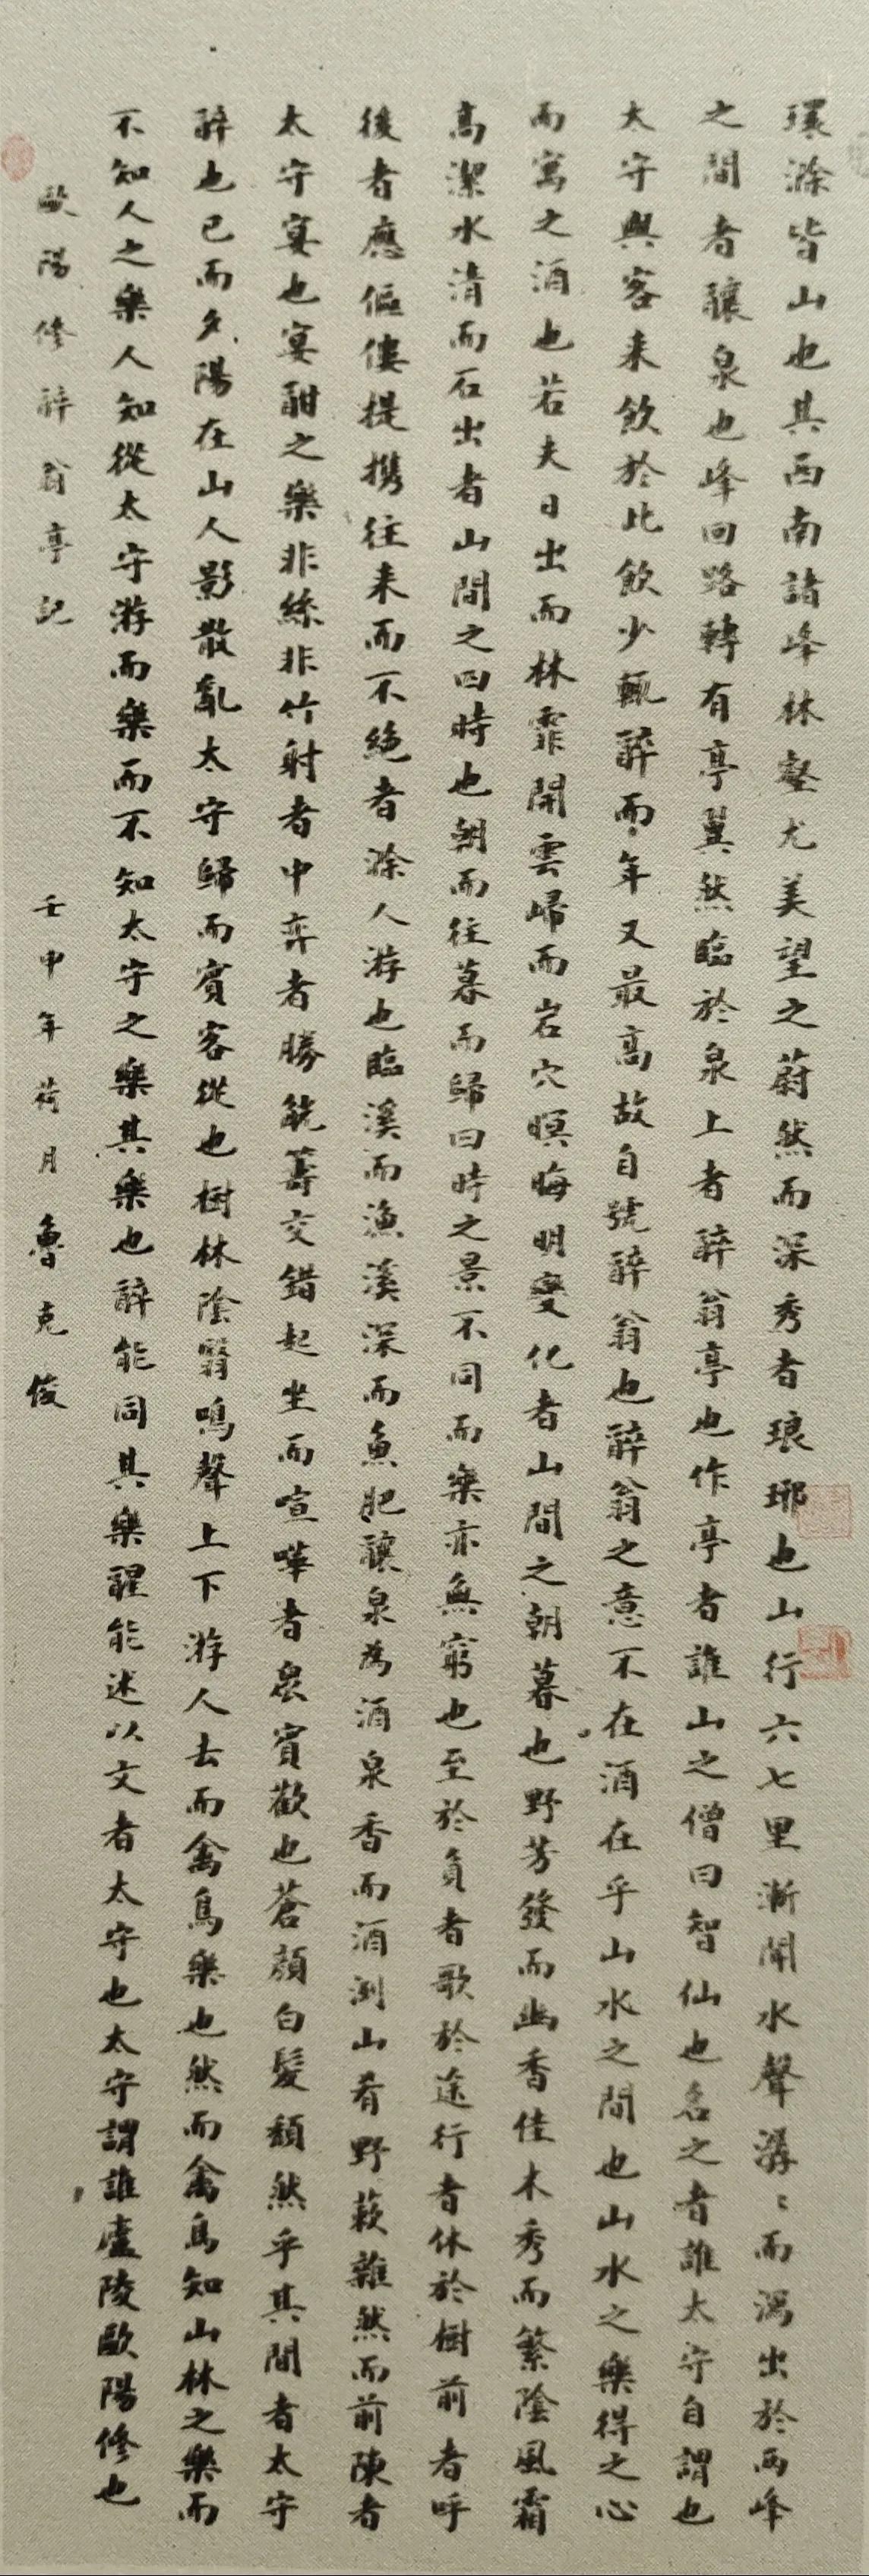 環滁皆山也其西南諸峰林壑尤美望之蔚然而深秀者琅琊也山行六七里漸聞水聲潺〻而瀉出於兩峰
之間者釀泉也峰回路轉有亭翼然臨於泉上者醉翁亭也作亭者誰山之僧曰智仙也名之者誰太守自謂也
太守與客来飲於此飲少輒醉而年又最高故自號醉翁也醉翁之意不在酒在乎山水之間也山水之樂得之心
而寓之酒也若夫日出而林霏開雲歸而岩穴暝晦明變化者山間之朝暮也野芳發而幽香佳木秀而繁陰風霜
高潔水清而石出者山間之四時也朝而往暮而歸四時之景不同而樂亦無窮也至於負者歌於途行者休於樹前者呼
後者應傴僂提携往来而不絕者滁人游也臨溪而漁溪深而魚肥釀泉為酒泉香而酒洌山肴野蔌雜然而前陳者
太守宴也宴酣之樂非絲非竹射者中弈者勝觥籌交錯起坐而喧嘩者眾賓歡也蒼顏白髮頹然乎其間者太守
醉也已而夕陽在山人影散亂太守歸而賓客從也樹林陰翳鳴聲上下游人去而禽鳥樂也然而禽鳥知山林之樂而
不知人之樂人知從太守游而樂而不知太守之樂其樂也醉能同其樂醒能述以文者太守也太守謂誰廬陵歐陽修也
歐陽修醉翁亭記 壬申年荷月 魯克俊